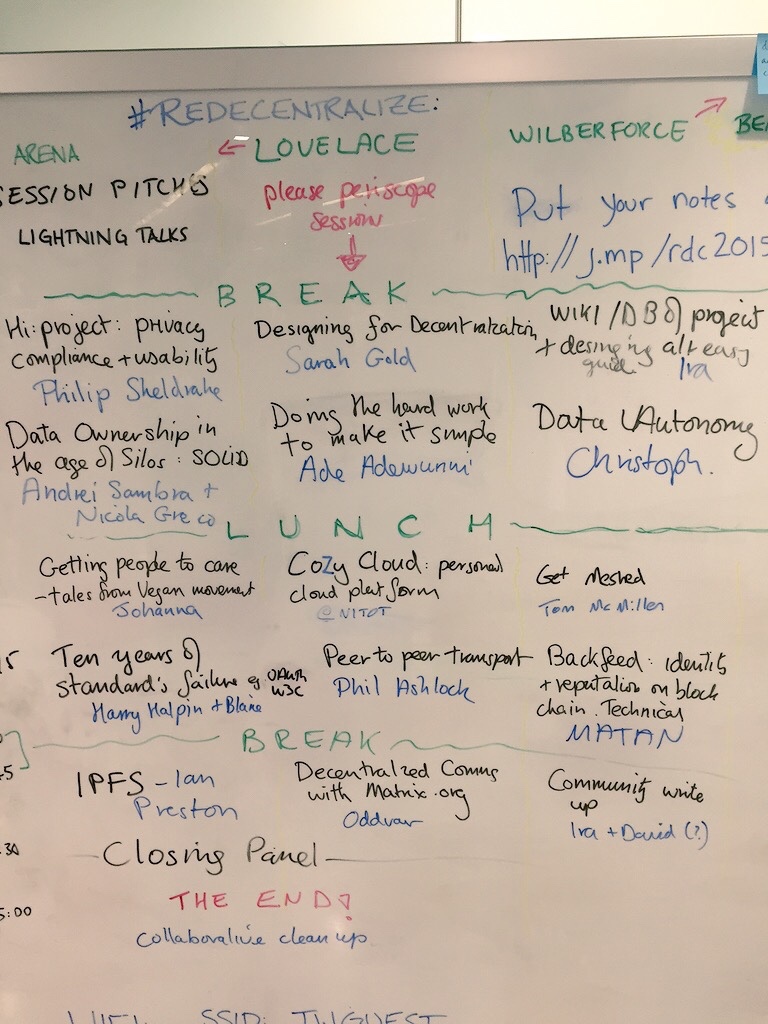 #REDECENTRALIZE:
ARENA
← LOVELACE
WILBERFORCE
SESSION PITCHES
LIGHTNING TALKS
please periscope
session
Put your notes
http://j.mp/rdc2015
BREAK
Hi:project: privacy
compliance + usability
Philip Sheldrake
Designing for Decentralization
Sarah Gold
WIKI/DB of project
+ desinging alt easy
guide Ira
Data Ownership in
the age of Silos: SOLID
Andrei Sambra +
Nicola Greco
Doing the hard work
to make it simple
Ade Adewunmi
Data Autonomy
Christoph.
LUNCH
Getting people to care
- tales from Vegan movement
Johanna
Cozy Cloud: personal
cloud platform
@NITOT
Get Meshed
Tom McMillen
Ten years of
standard's failure eg OAuth
W3C
Harry Halpin + Blaine
Peer to peer transport
Phil Ashlock
Backfeed: identity
+ reputation on block
chain. Technical
MATAN
BREAK
IPFS - Ian
Preston
Decentralized Comms
with Matrix.org
Oddvar
Community write
up
Ira + David (?)
30
Closing Panel
5:00
THE END!
Collaborative clean up
SSID: TWGUEST